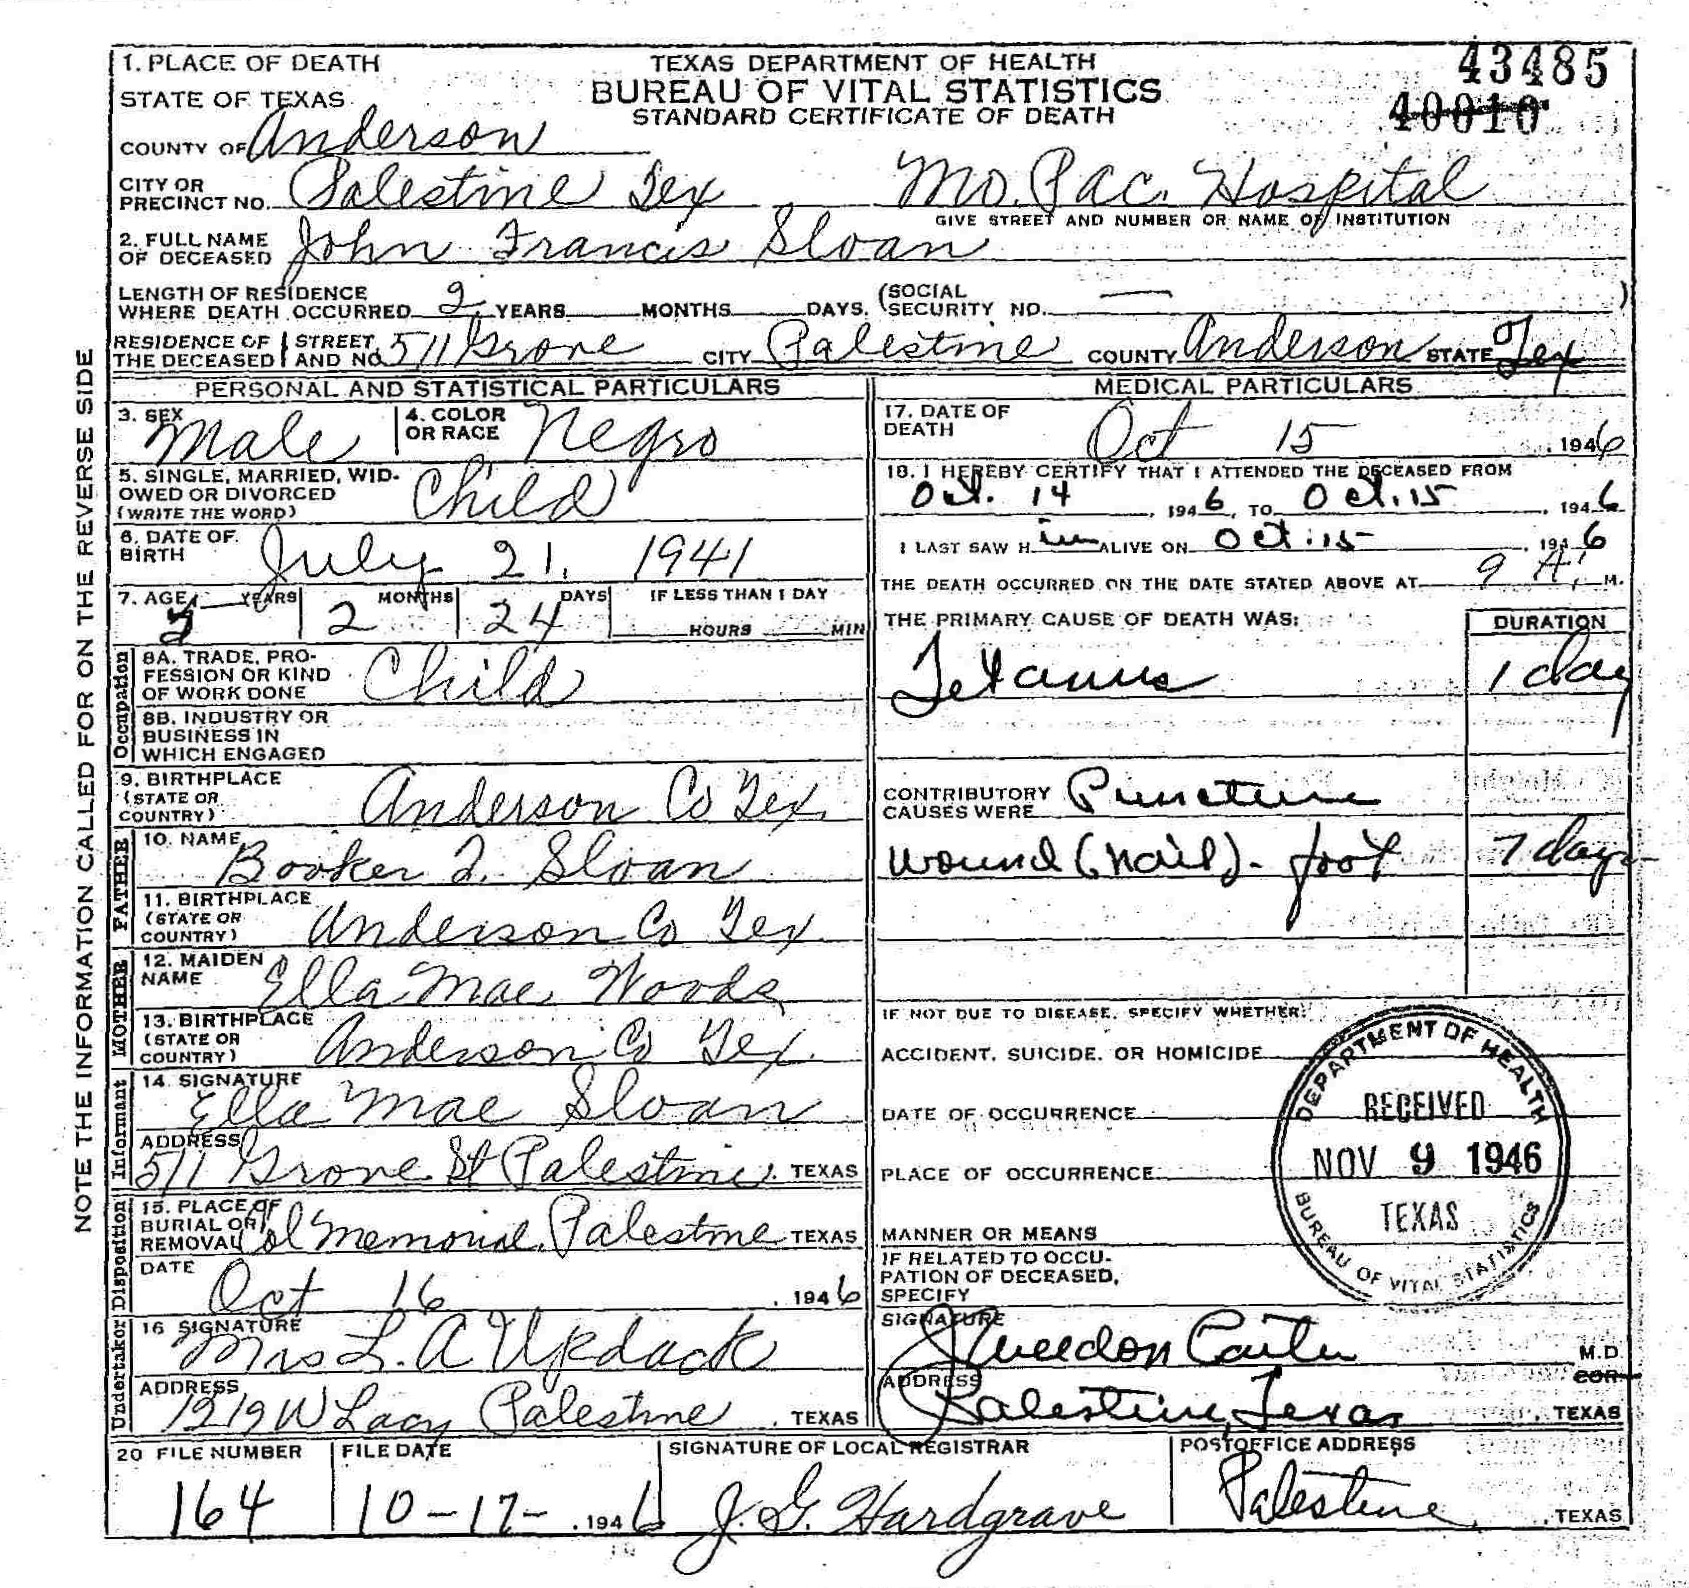 1. PLACE OF DEATH
STATE OF TEXAS
TEXAS DEPARTMENT OF HEALTH
BUREAU OF VITAL STATISTICS
STANDARD CERTIFICATE OF DEATH
43485
40010
COUNTY OF Anderson
CITY OR PRECINCT NO. Palestine Tex Mo. Pac. Hospital
GIVE STREET AND NUMBER OR NAME OF INSTITUTION
2. FULL NAME OF DECEASED John Francis Sloan
LENGTH OF RESIDENCE WHERE DEATH OCCURRED 2 YEARS MONTHS DAYS. (SOCIAL SECURITY NO. — )
RESIDENCE OF THE DECEASED STREET AND NO. 511 Grove CITY Palestine COUNTY Anderson STATE Tex
PERSONAL AND STATISTICAL PARTICULARS
3. SEX Male 4. COLOR OR RACE Negro
5. SINGLE, MARRIED, WIDOWED OR DIVORCED (WRITE THE WORD) Child
6. DATE OF BIRTH July 21, 1941
7. AGE YEARS 2 MONTHS 24 DAYS IF LESS THAN 1 DAY HOURS MIN
Occupation
8A. TRADE, PROFESSION OR KIND OF WORK DONE Child
8B. INDUSTRY OR BUSINESS IN WHICH ENGAGED
9. BIRTHPLACE (STATE OR COUNTRY) Anderson Co Tex.
FATHER
10. NAME Booker T. Sloan
11. BIRTHPLACE (STATE OR COUNTRY) Anderson Co Tex
MOTHER
12. MAIDEN NAME Ella Mae Woods
13. BIRTHPLACE (STATE OR COUNTRY) Anderson Co Tex.
Informant
14. SIGNATURE Ella Mae Sloan
ADDRESS 511 Grove St Palestine. TEXAS
Disposition
15. PLACE OF BURIAL OR REMOVAL Col Memorial, Palestine TEXAS
DATE Oct 16 , 1946
Undertaker
16 SIGNATURE Mrs L. A Updack
ADDRESS 1219 W Lacy Palestine , TEXAS
MEDICAL PARTICULARS
17. DATE OF DEATH Oct 15 , 1946
18. I HEREBY CERTIFY THAT I ATTENDED THE DECEASED FROM
Oct. 14 , 1946, TO Oct. 15 , 1946
I LAST SAW H im ALIVE ON Oct. 15 , 1946
THE DEATH OCCURRED ON THE DATE STATED ABOVE AT 9 A. M.
THE PRIMARY CAUSE OF DEATH WAS: DURATION
Tetanus 1 day
CONTRIBUTORY CAUSES WERE Puncture
wound (nail) - foot 7 days
IF NOT DUE TO DISEASE, SPECIFY WHETHER:
ACCIDENT, SUICIDE, OR HOMICIDE
DATE OF OCCURRENCE
PLACE OF OCCURRENCE
MANNER OR MEANS
IF RELATED TO OCCUPATION OF DECEASED, SPECIFY
SIGNATURE Carter M.D.
COR
ADDRESS Palestine, Texas , TEXAS
DEPARTMENT OF HEALTH
RECEIVED
NOV 9 1946
TEXAS
BUREAU OF VITAL STATISTICS
20 FILE NUMBER 164
FILE DATE 10-17- , 1946
SIGNATURE OF LOCAL REGISTRAR J. G. Hardgrave
POSTOFFICE ADDRESS Palestine , TEXAS
NOTE THE INFORMATION CALLED FOR ON THE REVERSE SIDE